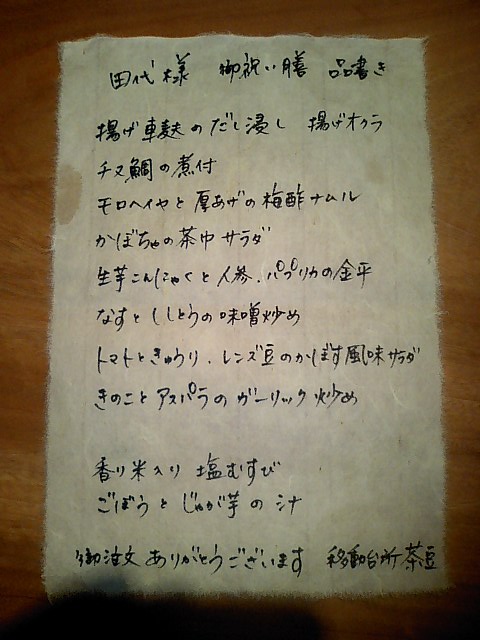 田代様 御祝い膳 品書き
揚げ車麩のだし浸し 揚げオクラ
チヌ鯛の煮付
モロヘイヤと厚あげの梅酢ナムル
かぼちゃの茶巾サラダ
生芋こんにゃくと人参、パプリカの金平
なすとししとうの味噌炒め
トマトときゅうり、レンズ豆のかぼす風味サラダ
きのことアスパラのガーリック炒め
香り米入り 塩むすび
ごぼうとじゃが芋の汁
御注文ありがとうございます 移動台所 茶豆